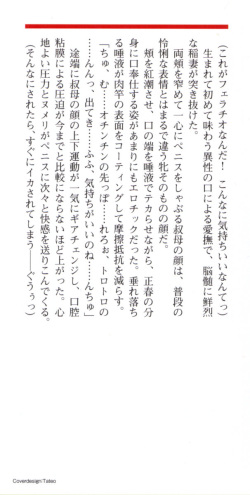 (これがフェラチオなんだ! こんなに気持ちいいなんてっ)
生まれて初めて味わう異性の口による愛撫で、脳髄に鮮烈
な稲妻が突き抜けた。
両頬を窄めて一心にペニスをしゃぶる叔母の顔は、普段の
怜悧な表情とはまるで違う牝そのものの顔だ。
頬を紅潮させ、口の端を唾液でテカらせながら、正春の分
身に口奉仕する姿があまりにもエロチックだった。垂れ落ち
る唾液が肉竿の表面をコーティングして摩擦抵抗を減らす。
「ちゅ、む……オチンチンの先っぽ……れろぉ、トロトロの
……んんっ、出てき……ふふ、気持ちがいいのね……んちゅ」
途端に叔母の顔の上下運動が一気にギアチェンジし、口腔
粘膜による圧迫が今までと比較にならないほど上がった。心
地よい圧力とヌメリがペニスに次々と快感を送りこんでくる。
(そんなにされたら、すぐにイカされてしまう……ぐうぅっ)
Coverdesign:Takeo